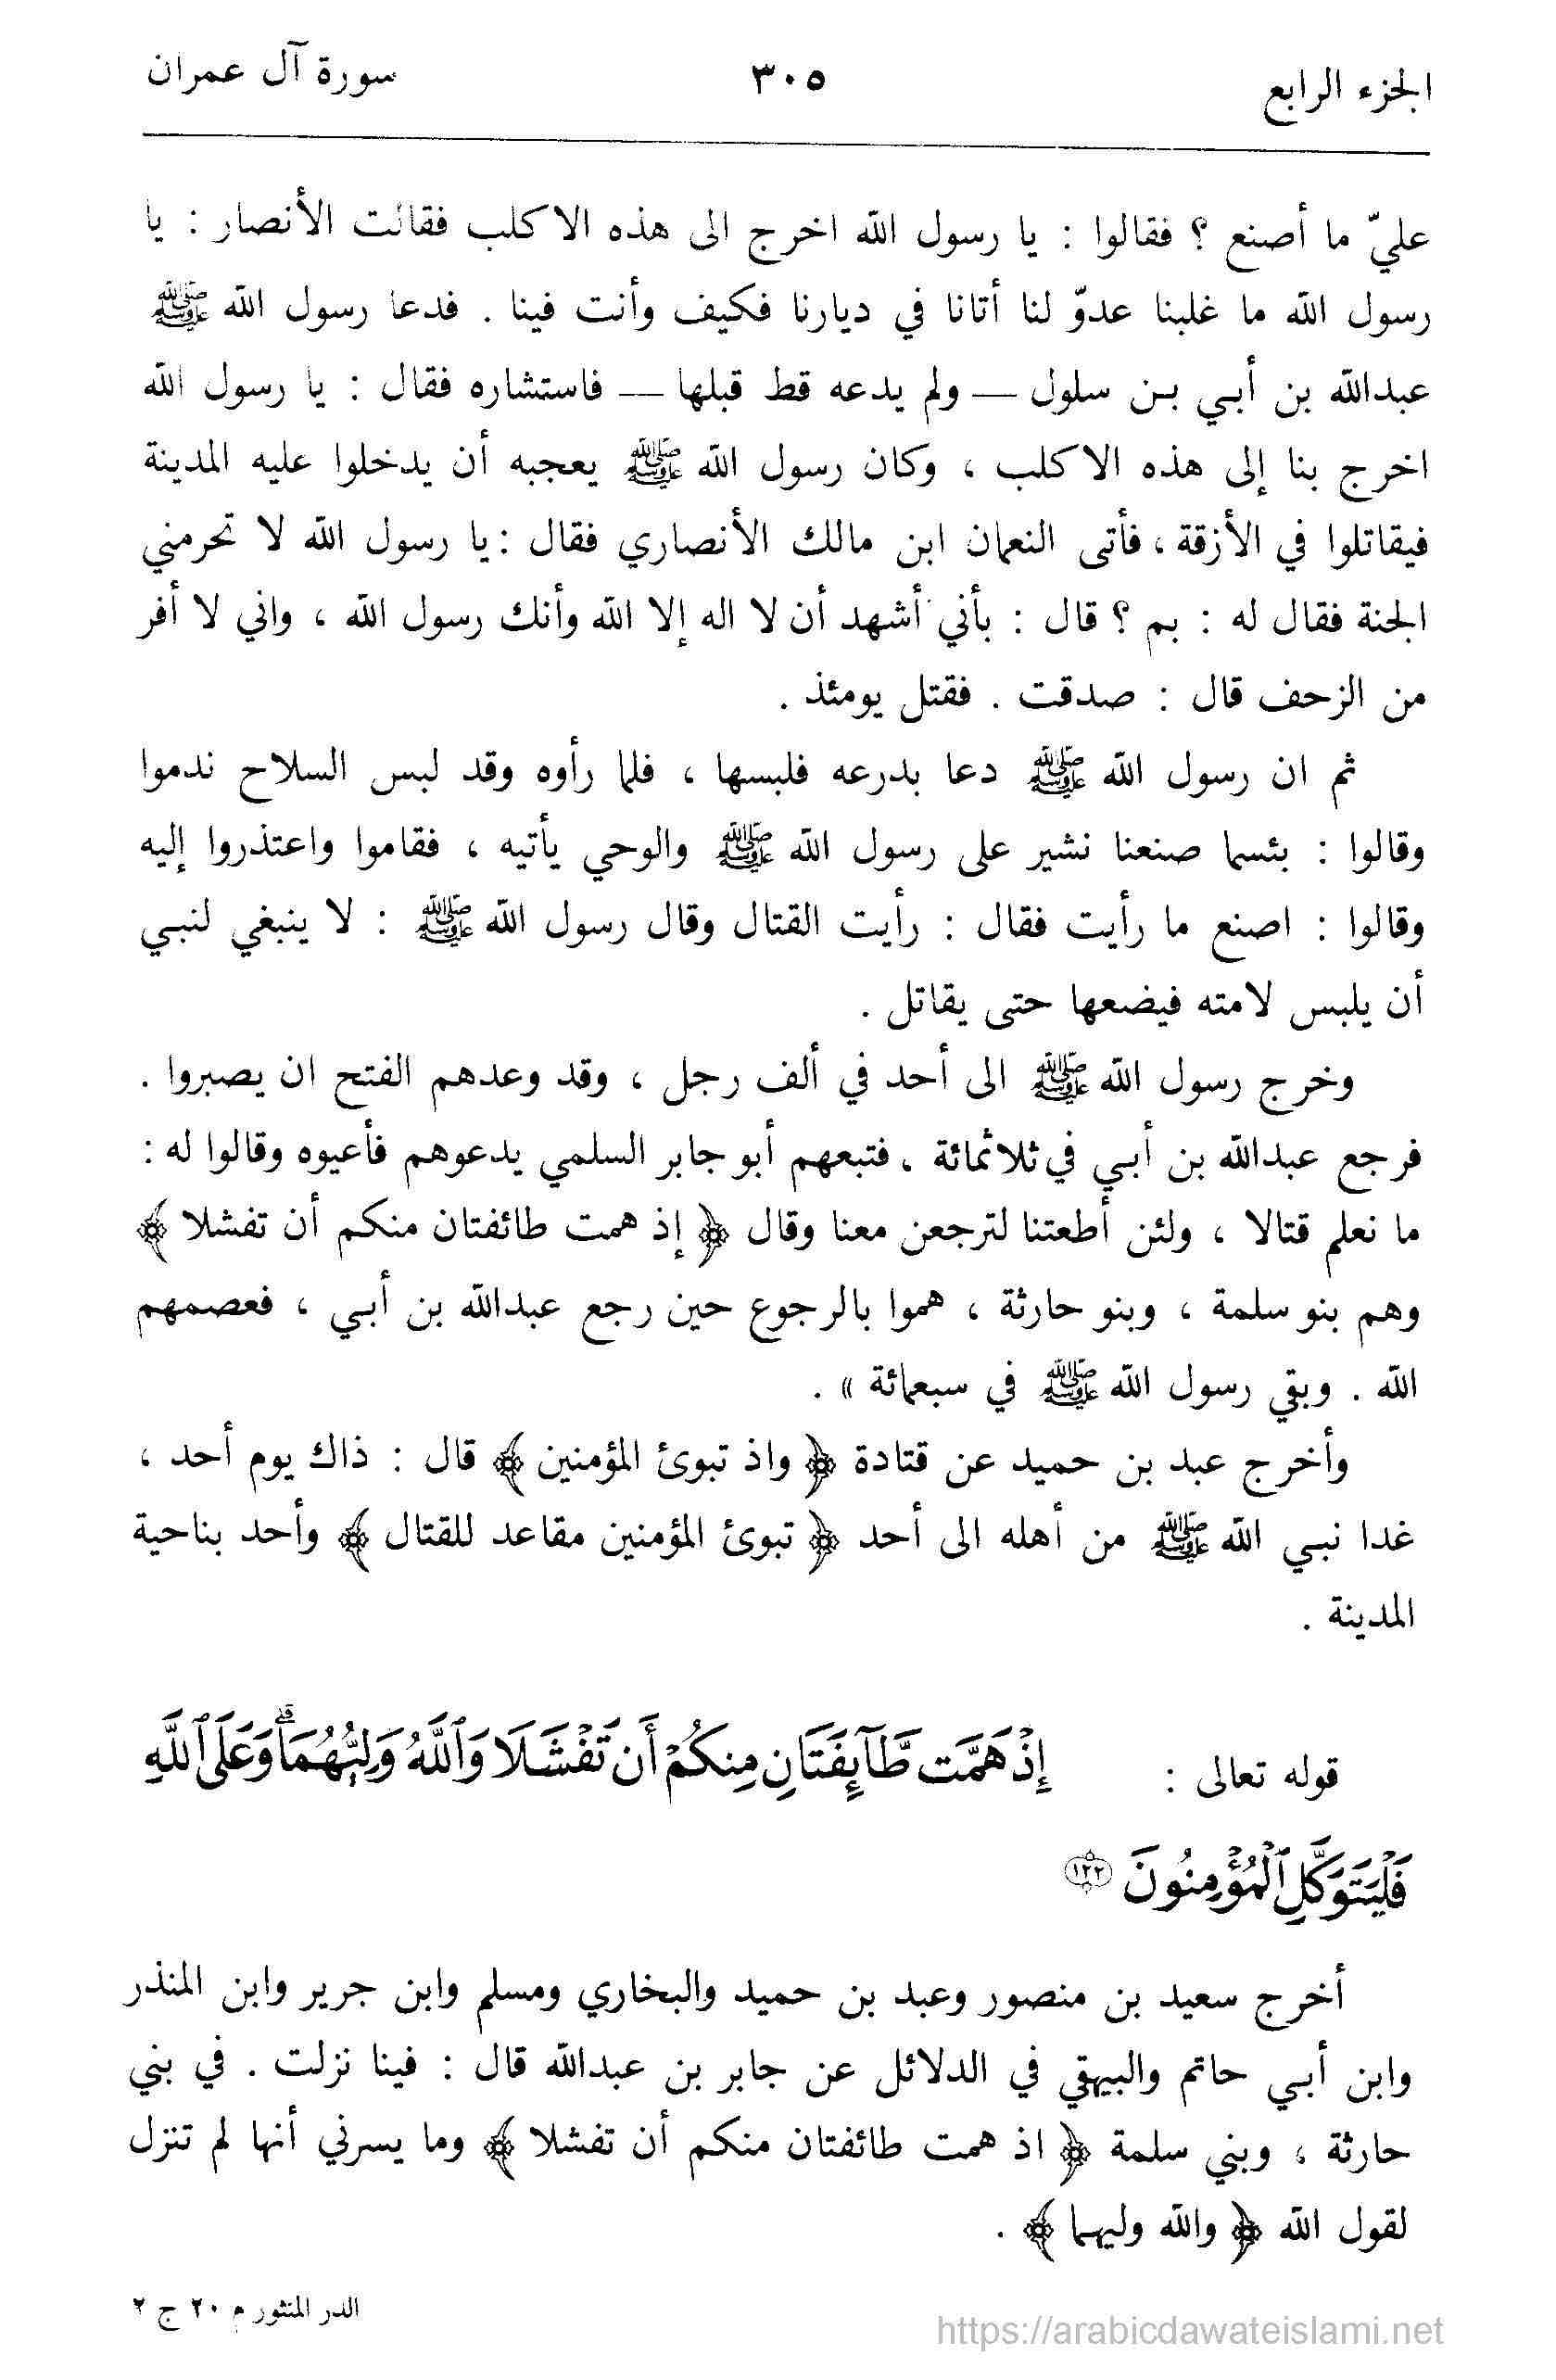 الجزء الرابع ٣٠٥ سورة آل عمران
عليّ ما أصنع ؟ فقالوا : يا رسول الله اخرج الى هذه الاكلب فقالت الأنصار : يا
رسول الله ما غلبنا عدوّ لنا أتانا في ديارنا فكيف وأنت فينا . فدعا رسول الله ﷺ
عبدالله بن أبـي بـن سلول — ولم يدعه قط قبلها — فاستشاره فقال : يا رسول الله
اخرج بنا إلى هذه الاكلب ، وكان رسول الله ﷺ يعجبه أن يدخلوا عليه المدينة
فيقاتلوا في الأزقة ، فأتى النعمان ابن مالك الأنصاري فقال : يا رسول الله لا تحرمني
الجنة فقال له : بم ؟ قال : بأني أشهد أن لا اله إلا الله وأنك رسول الله ، واني لا أفر
من الزحف قال : صدقت . فقتل يومئذ .
ثم ان رسول الله ﷺ دعا بدرعه فلبسها ، فلما رأوه وقد لبس السلاح ندموا
وقالوا : بئسما صنعنا نشير على رسول الله ﷺ والوحي يأتيه ، فقاموا واعتذروا إليه
وقالوا : اصنع ما رأيت فقال : رأيت القتال وقال رسول الله ﷺ : لا ينبغي لنبـي
أن يلبس لامته فيضعها حتى يقاتل .
وخرج رسول الله ﷺ الى أحد في ألف رجل ، وقد وعدهم الفتح ان يصبروا .
فرجع عبدالله بن أبـي في ثلاثمائة . فتبعهم أبو جابر السلمي يدعوهم فأعيوه وقالوا له :
ما نعلم قتالا ، ولئن أطعتنا لترجعن معنا وقال ﴿ إذ همت طائفتان منكم أن تفشلا ﴾
وهم بنو سلمة ، وبنو حارثة ، هموا بالرجوع حين رجع عبدالله بن أبـي ، فعصمهم
الله . وبقي رسول الله ﷺ في سبعمائة » .
وأخرج عبد بن حميد عن قتادة ﴿ واذ تبوئ المؤمنين ﴾ قال : ذاك يوم أحد ،
غدا نبـي الله ﷺ من أهله الى أحد ﴿ تبوئ المؤمنين مقاعد للقتال ﴾ وأحد بناحية
المدينة .
قوله تعالى : إِذْ هَمَّت طَّآئِفَتَانِ مِنكُمْ أَن تَفْشَلَا وَٱللَّهُ وَلِيُّهُمَا ۗ وَعَلَى ٱللَّهِ
فَلْيَتَوَكَّلِ ٱلْمُؤْمِنُونَ ١٢٢
أخرج سعيد بن منصور وعبد بن حميد والبخاري ومسلم وابن جرير وابن المنذر
وابن أبـي حاتم والبيهقي في الدلائل عن جابر بن عبدالله قال : فينا نزلت . في بني
حارثة ، وبني سلمة ﴿ اذ همت طائفتان منكم أن تفشلا ﴾ وما يسرني أنها لم تنزل
لقول الله ﴿ والله وليهما ﴾ .
الدر المنثور م ٢٠ ج ٢
https://arabicdawateislami.net